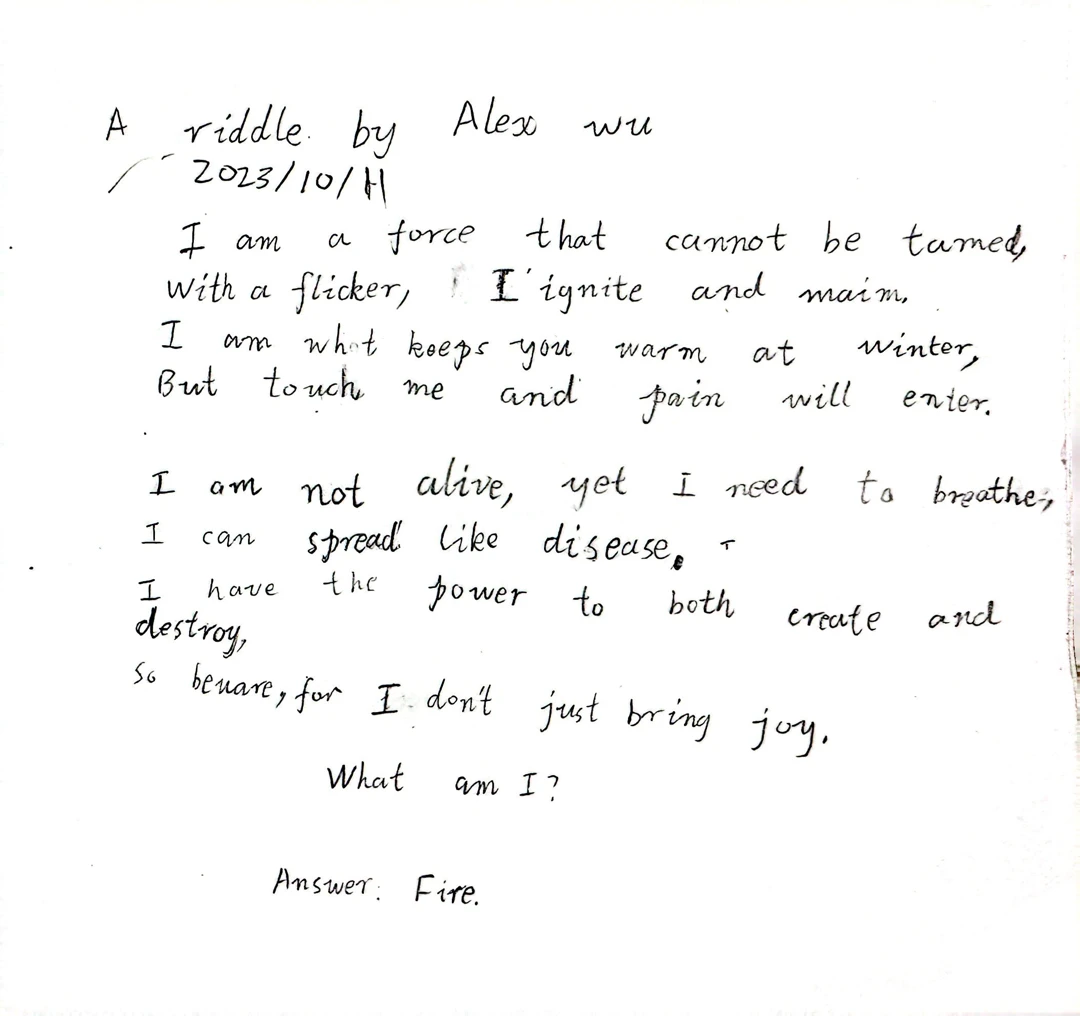 A riddle by Alex wu
2023/10/11
I am a force that cannot be tamed,
With a flicker, I ignite and maim.
I am what keeps you warm at winter,
But touch me and pain will enter.
I am not alive, yet I need to breathe,
I can spread like disease.
I have the power to both create and
destroy,
So beware, for I don't just bring joy.
What am I?
Answer: Fire.